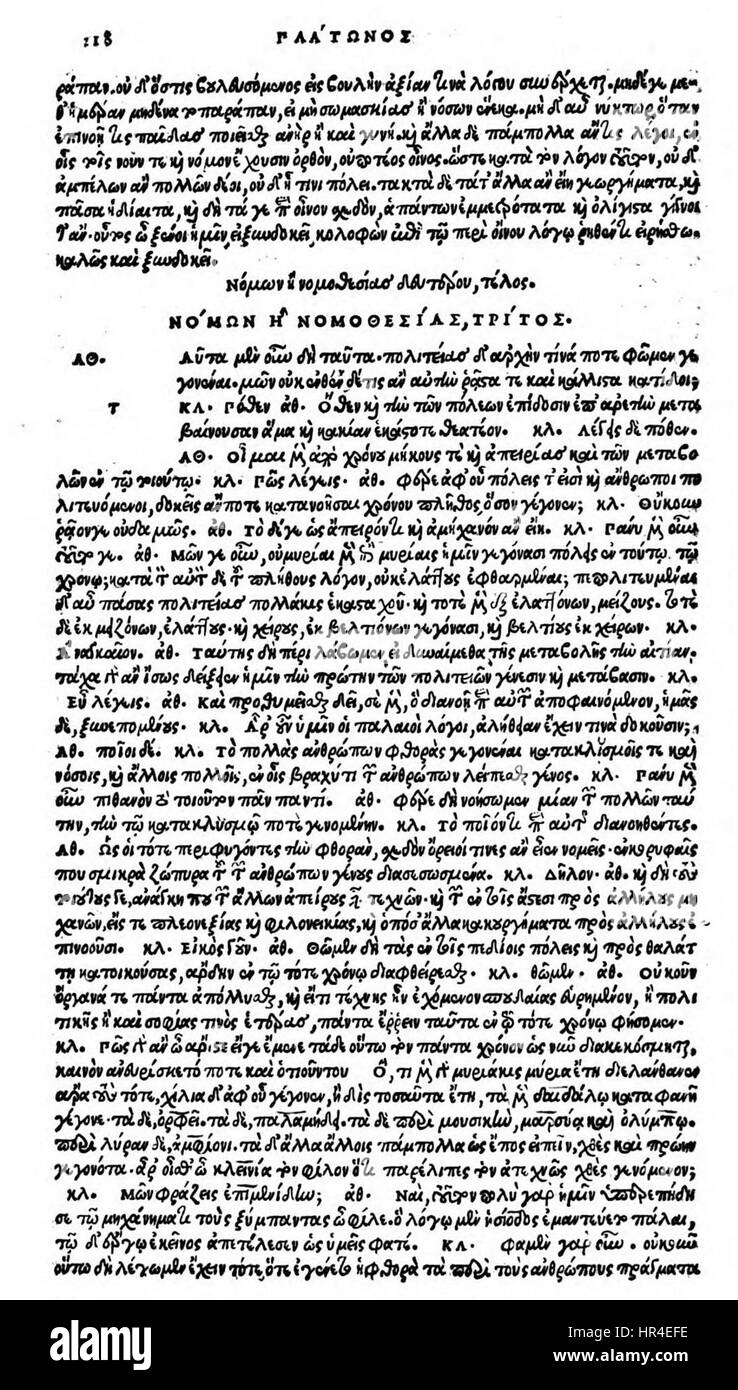 218 ΠΛΑΤΩΝΟΣ
ράπαν. οὐδ' ὅστις βουλευσόμενος εἰς βουλὴν ἀξίαν τινὰ λόγου συνέρχεται. μηδέ γε με-
θ' ἡμέραν μηδένα τοπαράπαν, εἰ μὴ σωμασκίας ἢ νόσων ἕνεκα. μὴ δ' αὖ νύκτωρ ὅταν
ἐπινοῇ τις παῖδας ποιεῖσθαι ἀνὴρ ἢ καὶ γυνή. καὶ ἄλλα δὲ πάμπολλα ἄν τις λέγοι, ἐν
οἷς τοῖς νοῦν τε καὶ νόμον ἔχουσιν ὀρθὸν, οὐ ποτέος οἶνος. ὥστε κατὰ τὸν λόγον τοῦτον, οὐδ'
ἀμπέλων ἂν πολλῶν δέοι, οὐδ' ᾗ τινι πόλει. τακτὰ δὲ τά τ' ἄλλα ἂν εἴη γεωργήματα, καὶ
πᾶσα ἡ δίαιτα, καὶ δὴ τά γε περὶ οἶνον σχεδὸν, ἁπάντων ἐμμετρότατα καὶ ὀλίγιστα γίγνοι
τ' ἄν. οὗτος ὦ ξένοι ἡμῖν, εἰ ξυνδοκεῖ, κολοφὼν ἐπὶ τῷ περὶ οἴνου λόγῳ ῥηθέντι εἰρήσθω.
καλῶς καὶ ξυνδοκεῖ.
Νόμων ἢ νομοθεσίας δευτέρου, τέλος.
ΝΟΜΩΝ Ἢ ΝΟΜΟΘΕΣΙΑΣ, ΤΡΙΤΟΣ.
ΑΘ. Αὗτα μὲν οὖν δὴ ταῦτα. πολιτείας δ' ἀρχὴν τίνά ποτε φῶμεν γε
γονέναι. μῶν οὐκ ἐνθένδε τις ἂν αὐτὴν ῥᾷστά τε καὶ κάλλιστα κατίδοι;
Τ ΚΛ. Πόθεν ἀθ. Ὅθεν καὶ τὴν τῶν πόλεων ἐπίδοσιν εἰς ἀρετὴν μετα
βαίνουσαν ἅμα καὶ κακίαν ἑκάστοτε θεατέον. κλ. Λέγεις δὲ πόθεν.
ΑΘ. Οἶμαι μὲν ἀπὸ χρόνου μήκους τε καὶ ἀπειρίας καὶ τῶν μεταβο
λῶν ἐν τῷ τοιούτῳ. κλ. Πῶς λέγεις. ἀθ. Φέρε ἀφ' οὗ πόλεις τ' εἰσὶ καὶ ἄνθρωποι πο
λιτευόμενοι, δοκεῖς ἄν ποτε κατανοῆσαι χρόνου πλῆθος, ὅσον γέγονεν; κλ. Οὔκουν
ῥᾴδιόν γε οὐδαμῶς. ἀθ. Τὸ δέ γε ὡς ἄπειρόν τι καὶ ἀμήχανον ἂν εἴη. κλ. Πάνυ μὲν οὖν
τοῦτό γε. ἀθ. Μῶν γε οὖν, οὐ μυρίαι μὲν ἐπὶ μυρίαις ἡμῖν γεγόνασι πόλεις ἐν τούτῳ τῷ
χρόνῳ; κατὰ τὸν αὐτὸν δὲ τοῦ πλήθους λόγον, οὐκ ἐλάττους ἐφθαρμέναι; πεπολιτευμέναι
δ' αὖ πάσας πολιτείας πολλάκις ἑκασταχοῦ. καὶ τοτὲ μὲν ἐξ ἐλαττόνων, μείζους. τοτὲ
δὲ ἐκ μειζόνων, ἐλάττους. καὶ χείρους, ἐκ βελτιόνων γεγόνασι, καὶ βελτίους ἐκ χειρόνων. κλ.
Ἀναγκαῖον. ἀθ. Ταύτης δὴ πέρι λάβωμεν εἰ δυναίμεθα τῆς μεταβολῆς τὴν αἰτίαν.
τάχα γὰρ ἂν ἴσως δείξειεν ἡμῖν τὴν πρώτην τῶν πολιτειῶν γένεσιν καὶ μετάβασιν. κλ.
Εὖ λέγεις. ἀθ. Καὶ προθυμεῖσθαι δεῖ, σὲ μὲν, ὃ διανοῇ περὶ αὐτῶν ἀποφαινόμενον, ἡμᾶς
δὲ, ξυνεπομένους. κλ. Ἆρ' οὖν ὑμῖν οἱ παλαιοὶ λόγοι, ἀλήθειαν ἔχειν τινὰ δοκοῦσιν;
ΑΘ. ποῖοι δέ. κλ. Τὸ πολλὰς ἀνθρώπων φθορὰς γεγονέναι κατακλυσμοῖς τε καὶ
νόσοις, καὶ ἄλλοις πολλοῖς, ἐν οἷς βραχύ τι τῶν ἀνθρώπων λείπεσθαι γένος. κλ. Πάνυ μὲν
οὖν πιθανὸν τὸ τοιοῦτον πᾶν παντί. ἀθ. Φέρε δὴ νοήσωμεν μίαν τῶν πολλῶν ταύ
την, τὴν τῷ κατακλυσμῷ ποτὲ γενομένην. κλ. τὸ ποῖόν τι περὶ αὐτῆς διανοηθέντες.
ΑΘ. Ὡς οἱ τότε περιφυγόντες τὴν φθορὰν, σχεδὸν ὄρειοί τινες ἂν εἶεν νομεῖς. ἐν κορυφαῖς
που σμικρὰ ζώπυρα τοῦ τῶν ἀνθρώπων γένους διασεσωσμένα. κλ. Δῆλον. ἀθ. καὶ δὴ τοὺς
τοιούτους γε, ἀνάγκη που τῶν ἄλλων ἀπείρους εἶναι τεχνῶν. καὶ τῶν ἐν τοῖς ἄστεσι πρὸς ἀλλήλους μη
χανῶν, εἴς τε πλεονεξίας καὶ φιλονεικίας, καὶ ὁπόσ' ἄλλα κακουργήματα πρὸς ἀλλήλους ἐ
πινοοῦσι. κλ. Εἰκὸς γοῦν. ἀθ. Θῶμεν δὴ τὰς ἐν τοῖς πεδίοις πόλεις καὶ πρὸς θαλάτ
τῃ κατοικούσας, ἄρδην ἐν τῷ τότε χρόνῳ διαφθείρεσθαι. κλ. θῶμεν. ἀθ. Οὐκοῦν
ὄργανά τε πάντα ἀπόλλυσθαι, καὶ εἴ τι τέχνης ἦν ἐχόμενον σπουδαίας εὑρημένον, ἢ πολι
τικῆς ἢ καὶ σοφίας τινὸς ἑτέρας, πάντα ἔρρειν ταῦτα ἐν τῷ τότε χρόνῳ φήσομεν.
κλ. Πῶς γὰρ ἂν ὦ ἄριστε εἴγε ἔμενε τάδε οὕτω τὸν πάντα χρόνον ὡς νῦν διακεκόσμηται,
καινὸν ἀνευρίσκετό ποτε καὶ ὁτιοῦν τοῦ Ὅ, τι μὲν γὰρ μυριάκις μύρια ἔτη διελάνθανεν
ἄρα τοὺς τότε, χίλια δ' ἀφ' οὗ γέγονεν, ἢ δὶς τοσαῦτα ἔτη, τὰ μὲν δαιδάλῳ καταφανῆ
γέγονε. τὰ δὲ, ὀρφεῖ. τὰ δὲ, παλαμήδει. τὰ δὲ περὶ μουσικὴν, μαρσύᾳ καὶ ὀλύμπῳ.
περὶ λύραν δὲ, ἀμφίονι. τὰ δ' ἄλλα ἄλλοις πάμπολλα ὡς ἔπος εἰπεῖν, χθὲς καὶ πρώην
γεγονότα. ἆρ' οἶσθ' ὦ κλεινία τὸν φίλον ὅτι παρέλιπες τὸν ἀτεχνῶς χθὲς γενόμενον;
κλ. Μῶν φράζεις ἐπιμενίδην; ἀθ. Ναὶ, τοῦτον. πολὺ γὰρ ἡμῖν ὑπερεπήδη
σε τῷ μηχανήματι τοὺς ξύμπαντας ὦ φίλε. ὃ λόγῳ μὲν ἡσίοδος ἐμαντεύετο πάλαι,
τῷ δ' ἔργῳ ἐκεῖνος ἀπετέλεσεν ὡς ὑμεῖς φατέ. ΚΛ. φαμὲν γὰρ οὖν. οὐκοῦν
οὕτω δὴ λέγωμεν ἔχειν τότε, ὅτε ἐγένετο ἡ φθορὰ τὰ περὶ τοὺς ἀνθρώπους πράγματα
alamy
Image ID: HR4EFE
www.alamy.com